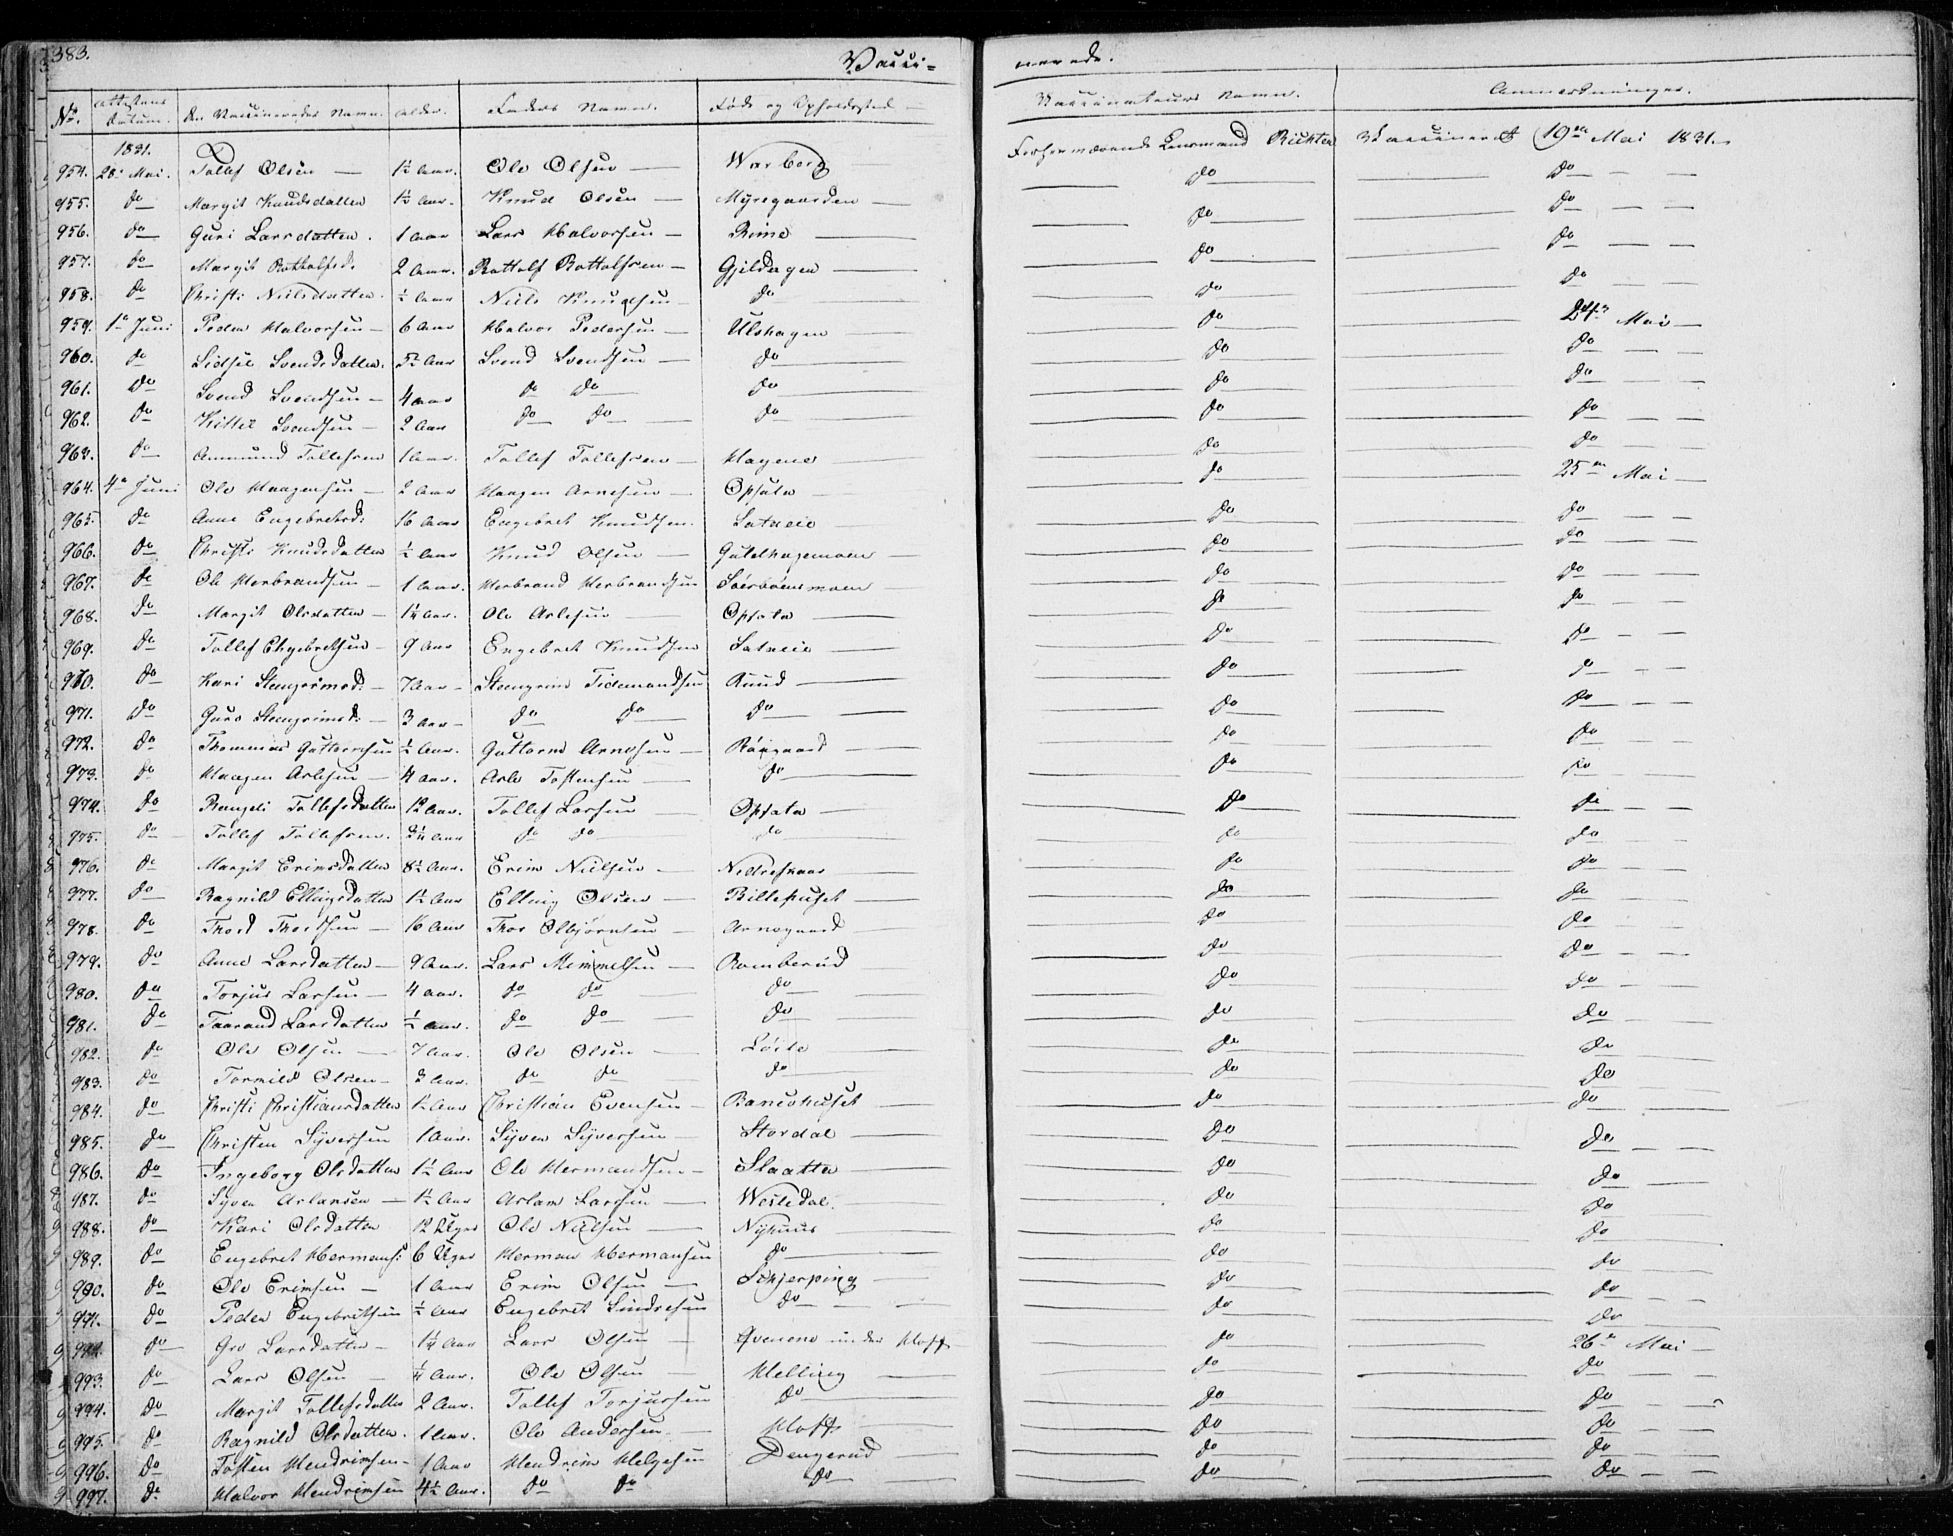 383. Vacci= nerede.
No. Attestens Datum. Den Vaccineredes Navn. Alder. Faders Navn. Føde og Opholdssted Vaccinateurs Navn. Anmerkninger.
1831.
954. 28. Mai. Tollef Olsen — 1½ Aar. Ole Olsen — Warberg Forhenværende Lensmand Richter Vaccineret 19de Mai 1831.
955. do Margit Knudsdatter 1½ Aar. Knud Olsen — Myregaarden — do — do — —
956. do Guri Larsdatter. 1 Aar Lars Halvorsen — Rime — do — do — —
957. do Margit Bottolfsd. 2 Aar. Bottolf Bottolfsen — Gjeldagen — do — do — —
958. do Christi Nielsdatter. ½ Aar Niels Knudsen do — do — do
959. 1e Juni Peder Halvorsen — 6 Aar Halvor Pedersen — Ulshagen — do — 24de Mai —
960. do Sidsel Svendsdatter. 5½ Aar Svend Svendsen — do — do — do — —
961. do Svend Svendsen — 4 Aar do do — do — do — do — —
962. do Kittil Svendsen — 2 Aar do do — do — do — do — —
963. do Ammund Tollefsen 1 Aar. Tollef Tollefsen — Hagene — do — do —
964. 4e Juni Ole Haagensen — 2 Aar Haagen Arnesen — Opsata — do — 25de Mai —
965. do Anne Engebretsd: 16 Aar Engebret Knudsen. Satreie — do — do — —
966. do Christi Knudsdatter ½ Aar Knud Olsen — Gulelhagemoen — do — do — —
967. do Ole Herbrandsen — 1 Aar. Herbrand Herbrandsen Soerboensmoen — do — do — —
968. do Margit Olsdatter — 1¼ Aar. Ole Arlesen — Opsata — do — do — —
969. do Tollef Engebretsen — 9 Aar Engebret Knudsen Satreie — do — do — —
970. do Kari Stengrimsd. — 7 Aar — Stengrim Tidemandsen Ruud — do — do — —
971. do Guro Stengrimsd. — 3 Aar — do do — do — do — do — —
972. do Thommas Guttormsen ½ Aar. Guttorm Arnesen — Røigaard — do — do — —
973. do Haagen Arlesen — 4 Aar. Arle Tostensen — do — do — do — —
974. do Rangdi Tollefsdatter 12 Aar. Tollef Larsen — Opsata — do — do — —
975. do Tollef Tollefsen. 2¼ Aar do do — do — do — do — —
976. do Margit Erimsdatter 8½ Aar. Erim Nielsen — Nedrefkaas — do — do — —
977. do Ragnild Ellingsdatter 1½ Aar Elling Olsen — Billehuset — do — do — —
978. do Thord Thordsen — 16 Aar Thor Olbjørnsen — Arnegaard — do — do — —
979. do Anne Larsdatter — 9 Aar. Lars Mimmelsen — Romberud — do — do — —
980. do Torjus Larsen — 4 Aar. do do — do — do — do — —
981. do Taarand Larsdatter ½ Aar. do do — do — do — do — —
982. do Ole Olsen — 7 Aar. Ole Olsen — Løite — do — do — —
983. do Tormild Olsen — 2 Aar. do do — do — do — do
984. do Christi Christiansdatter 1½ Aar Christian Evensen — Banevhuset — do — do — —
985. do Christen Syversen 1 Aar. Syver Syversen — Stordal — do — do — —
986. do Ingeborg Olsdatter 1½ Aar Ole Hermandsen — Slaatta — do — do — —
987. do Syver Arlansen — 1½ Aar Arlan Larsen — Westedal. — do — do
988. do Kari Olsdatter 12 Uger Ole Nielsen — Nyhuus — do — do
989. do Engebret Hermans: 6 Uger Herman Hermansen do — do — do
990. do Ole Erimsen — 1 Aar Erim Olsen — Skjerping — do — do —
991. do Peder Engebretsen ½ Aar Engebret Sindresen do — do — do
992. do Gro Larsdatter — 1¼ Aar Lars Olsen — Qvenene under Hoff — do — 26de Mai —
993. do Lars Olsen — ¼ Aar. Ole Olsen — Helling — do — do — —
994. do Margit Tollefsdatter 2 Aar. Tollef Torjussen do — do — do — —
995. do Ragnild Olsdatter. 1 Aar. Ole Andersen. — Hoff — do — do — —
996. do Tosten Hendrimsen — 1 Aar Hendrim Helgesen Dengerud — do — do — —
997. do Halvor Hendrimsen 4½ Aar. do do do — do — do — —